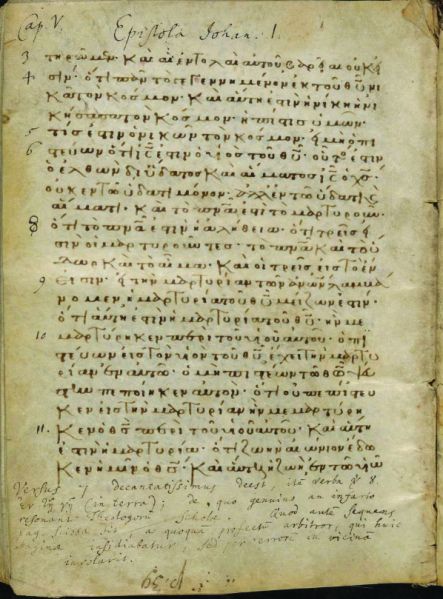 Cap. V. Epistola Johan. I.
3 τηρῶμεν· καὶ αἱ ἐντολαὶ αὐτοῦ βαρεῖαι οὐκ εἰ
4 σίν· ὅτι πᾶν τὸ γεγεννημένον ἐκ τοῦ θ̅υ̅ νι
κᾷ τὸν κόσμον· καὶ αὕτη ἐστὶν ἡ νίκη ἡ νι
κήσασα τὸν κόσμον· ἡ πίστις ὑμῶν·
5 τίς ἐστιν ὁ νικῶν τὸν κόσμον· εἰ μὴ ὁ πι
6 στεύων ὅτι ι̅ς̅ ἐστιν ὁ υἱὸς τοῦ θ̅υ̅· οὗτός ἐστιν
ὁ ἐλθὼν δι ὕδατος καὶ αἵματος ι̅ς̅ ὁ χ̅ς̅·
οὐκ ἐν τῷ ὕδατι μόνον· ἀλλ ἐν τῷ ὕδατι ϗ
αἵματι· καὶ τὸ π̅ν̅α̅ ἐστι τὸ μαρτυροῦν·
8 ὅτι τὸ π̅ν̅α̅ ἐστιν ἡ ἀλήθεια· ὅτι τρεῖς εἰ
σιν οἱ μαρτυροῦντες· τὸ π̅ν̅α̅ καὶ τὸ ὕ
δωρ καὶ τὸ αἷμα· καὶ οἱ τρεῖς εἰς τὸ ἕν
9 εἰσιν· εἰ τὴν μαρτυρίαν τῶν α̅ν̅ω̅ν̅ λαμβά
νομεν· ἡ μαρτυρία τοῦ θ̅υ̅ μείζων ἐστίν·
ὅτι αὕτη ἐστὶν ἡ μαρτυρία τοῦ θ̅υ̅· ἣν με
10 μαρτύρηκεν περὶ τοῦ υἱοῦ αὐτοῦ· ὁ πι
στεύων εἰς τὸν υἱὸν τοῦ θ̅υ̅ ἔχει τὴν μαρτυ
ρίαν ἐν αὐτῷ· ὁ μὴ πιστεύων τῷ θ̅ω̅ ψεύ
στην πεποίηκεν αὐτόν· ὅτι οὐ πεπίστευ
κεν εἰς τὴν μαρτυρίαν ἣν μεμαρτύρη
11. κεν ὁ θ̅ς̅ περὶ τοῦ υἱοῦ αὐτοῦ· καὶ αὕτη
ἐστὶν ἡ μαρτυρία· ὅτι ζωὴν αἰώνιον ἔδω
κεν ἡμῖν ὁ θ̅ς̅· καὶ αὕτη ἡ ζωὴ ἐν τῷ υἱῷ
Versus 7 decantatissimus deest, item verba ℣ 8.
ἐν τῇ γῇ (in terra); de quo genuins an infario
resonant Theologorum Scholae. Quod ante sequens
pag. scissa sit, a quoquam profectum arbitror, qui huic
pagina insidiabatur sed per errorem in vicina
involavit.